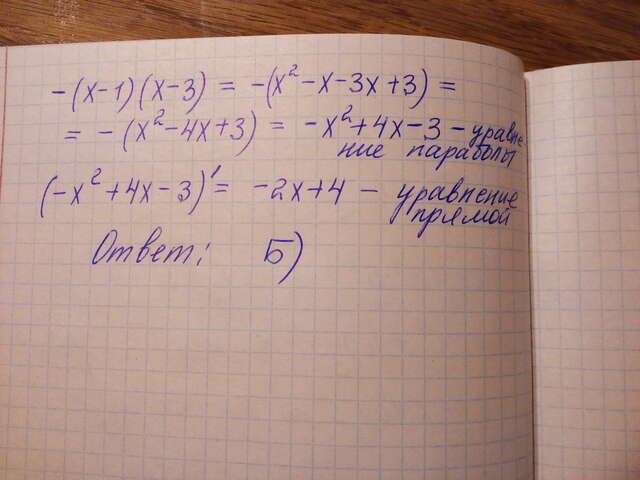 -(x-1)(x-3) = -(x²-x-3x+3) =
= -(x²-4x+3) = -x²+4x-3 - уравне
ние параболы
(-x²+4x-3)' = -2x+4 - уравнение
прямой
Ответ: Б)